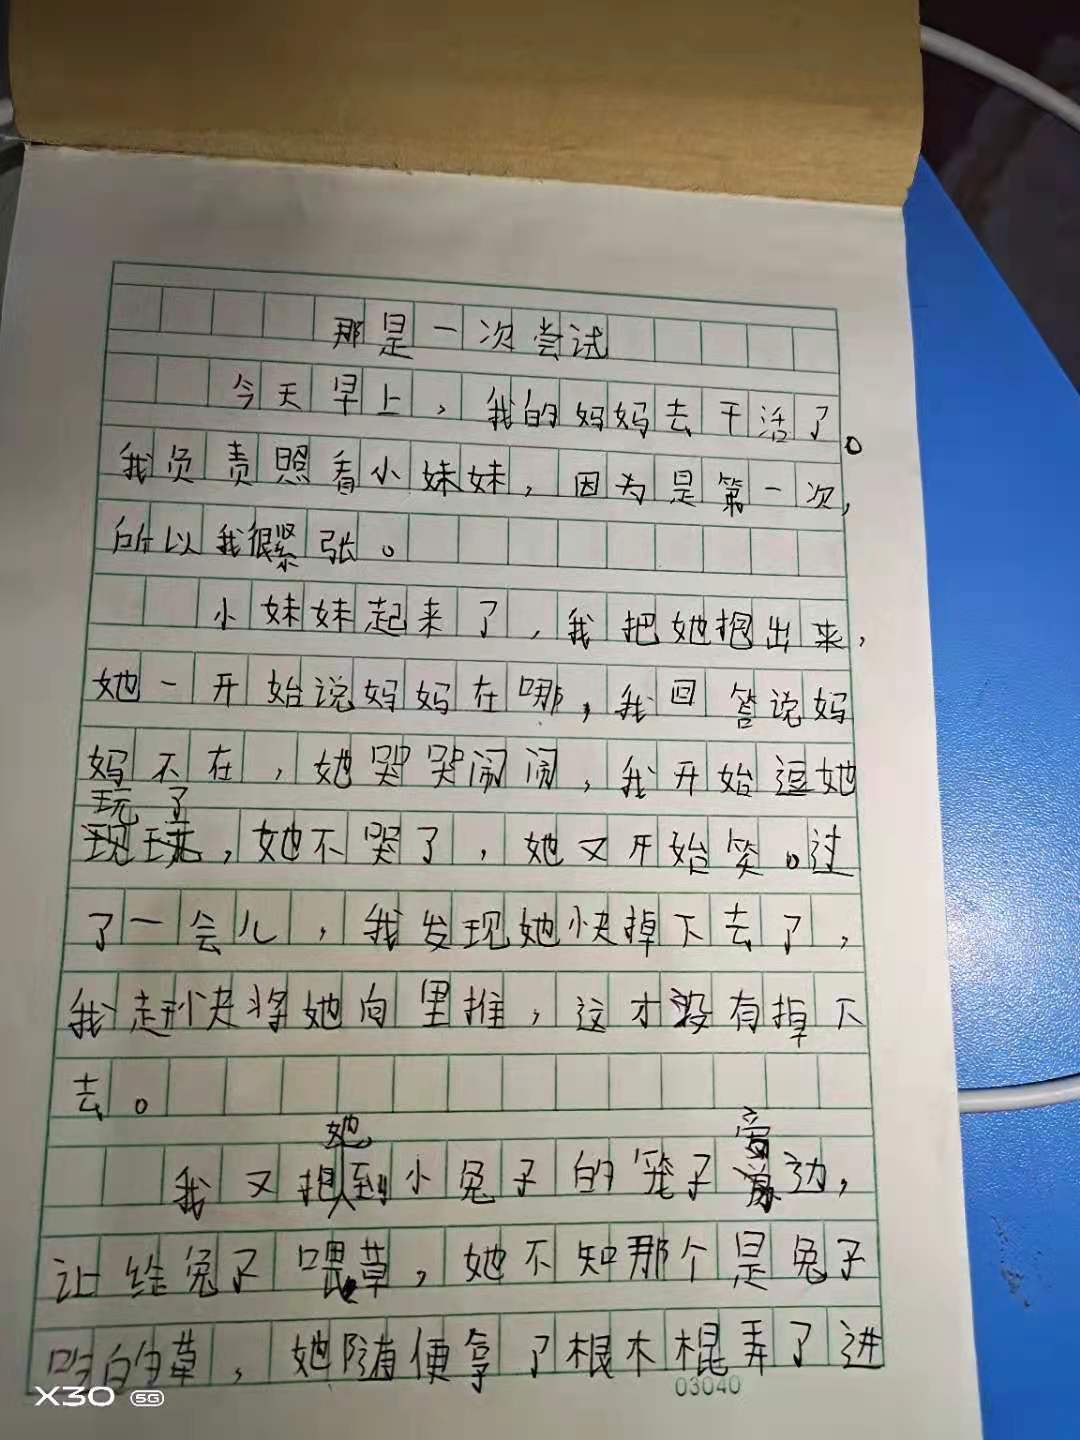 那是一次尝试
今天早上，我的妈妈去干活了。
我负责照看小妹妹，因为是第一次，
所以我很紧张。
小妹妹起来了，我把她抱出来，
她一开始说妈妈在哪，我回答说妈
妈不在，她哭哭闹闹，我开始逗她
玩了
，她不哭了，她又开始笑。过
了一会儿，我发现她快掉下去了，
我赶快将她向里推，这才没有掉下
去。
她
我又抱到小兔子的笼子旁边，
让给兔子喂草，她不知那个是兔子
吃的草，她随便拿了根木棍弄了进
03040
X30 5G